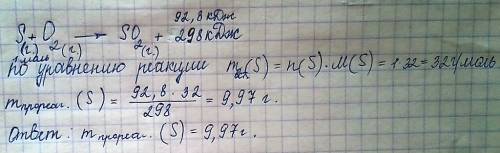 92,8 кДж
S + O₂ → SO₂ + 298 кДж
(г.) (г.) (г.)
1 моль
По уравнению реакции m(S) = n(S) · M(S) = 1·32 = 32 г/моль
m прореаг. (S) = 92,8 · 32 / 298 = 9,97 г.
Ответ: m прореаг. (S) = 9,97 г.